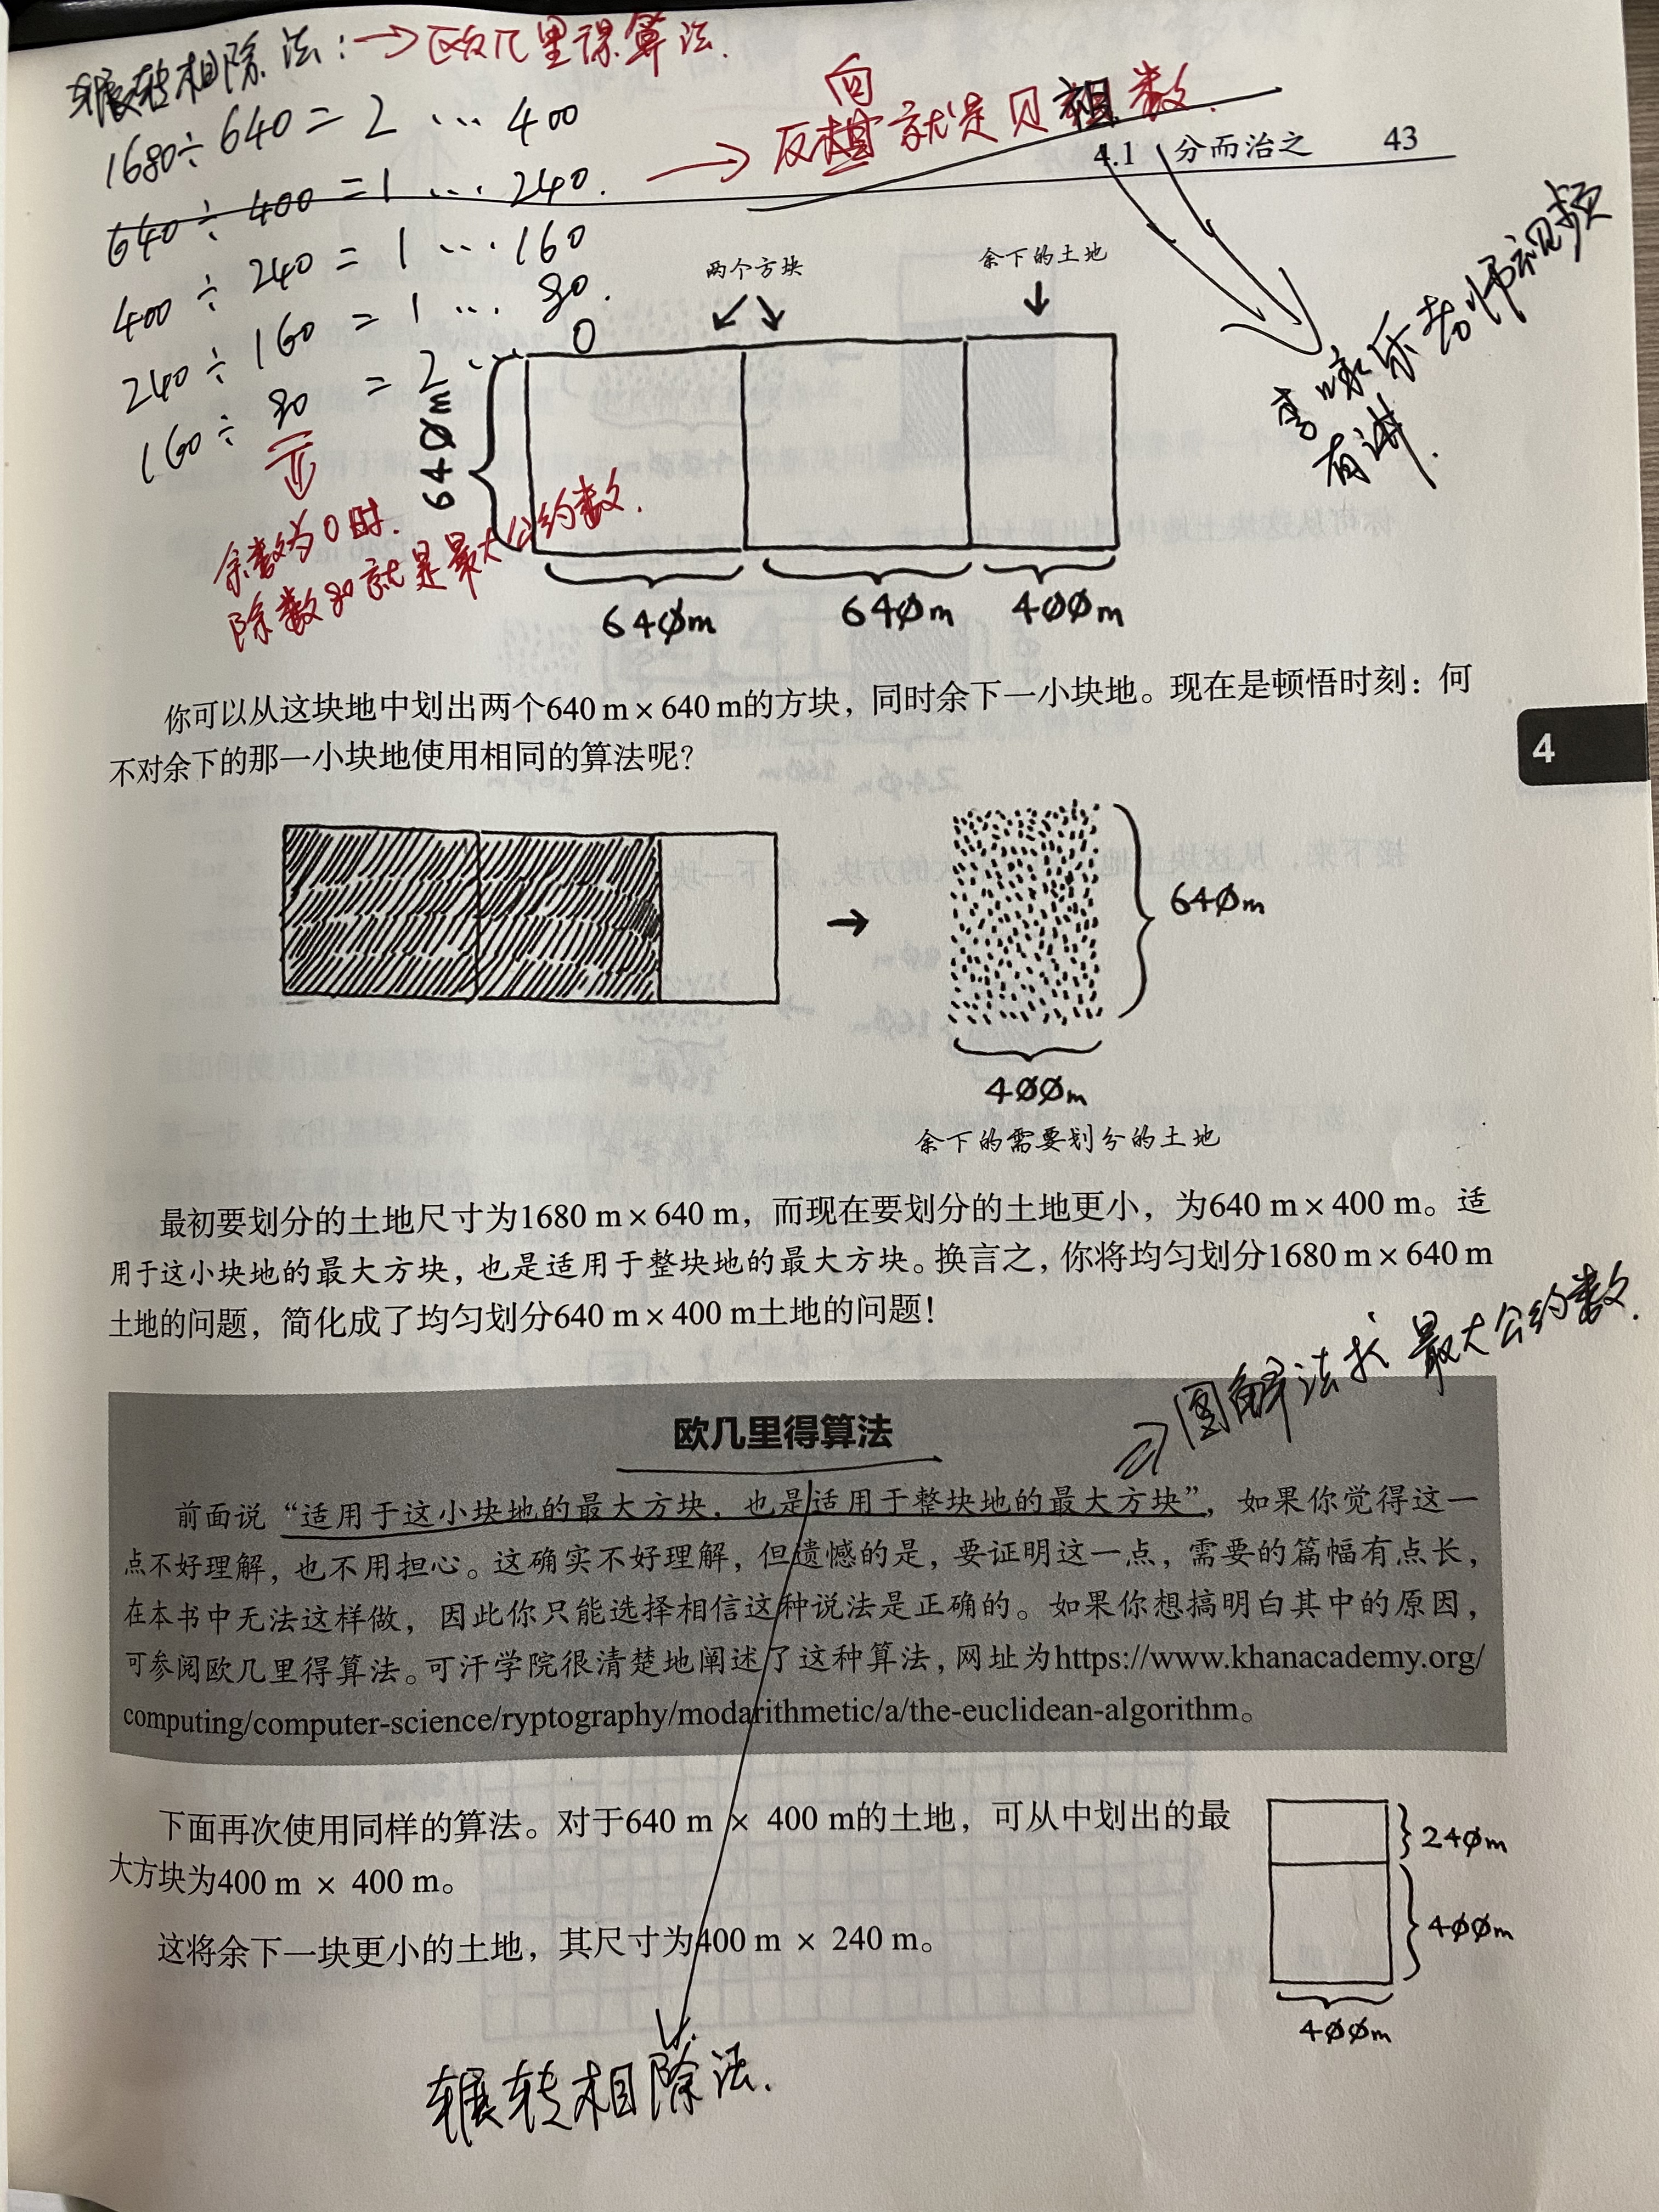 辗转相除法：→欧几里得算法.
1680÷640=2 … 400
640÷400=1 … 240.
400÷240=1 … 160
240÷160=1 … 80.
160÷80=2 … 0
余数为0时.
除数80就是最大公约数.
向
→反
就是贝祖数.
李永乐老师视频
有讲.
4.1 分而治之 43
两个方块
余下的土地
640m
640m 640m 400m
你可以从这块地中划出两个640 m×640 m的方块，同时余下一小块地。现在是顿悟时刻：何
不对余下的那一小块地使用相同的算法呢？
4
→
640m
400m
余下的需要划分的土地
最初要划分的土地尺寸为1680 m×640 m，而现在要划分的土地更小，为640 m×400 m。适
用于这小块地的最大方块，也是适用于整块地的最大方块。换言之，你将均匀划分1680 m×640 m
土地的问题，简化成了均匀划分640 m×400 m土地的问题！
图解法求最大公约数.
欧几里得算法
前面说“适用于这小块地的最大方块，也是适用于整块地的最大方块”，如果你觉得这一
点不好理解，也不用担心。这确实不好理解，但遗憾的是，要证明这一点，需要的篇幅有点长，
在本书中无法这样做，因此你只能选择相信这种说法是正确的。如果你想搞明白其中的原因，
可参阅欧几里得算法。可汗学院很清楚地阐述了这种算法，网址为https://www.khanacademy.org/
computing/computer-science/ryptography/modarithmetic/a/the-euclidean-algorithm。
下面再次使用同样的算法。对于640 m × 400 m的土地，可从中划出的最
大方块为400 m × 400 m。
这将余下一块更小的土地，其尺寸为400 m × 240 m。
240m
400m
400m
辗转相除法.